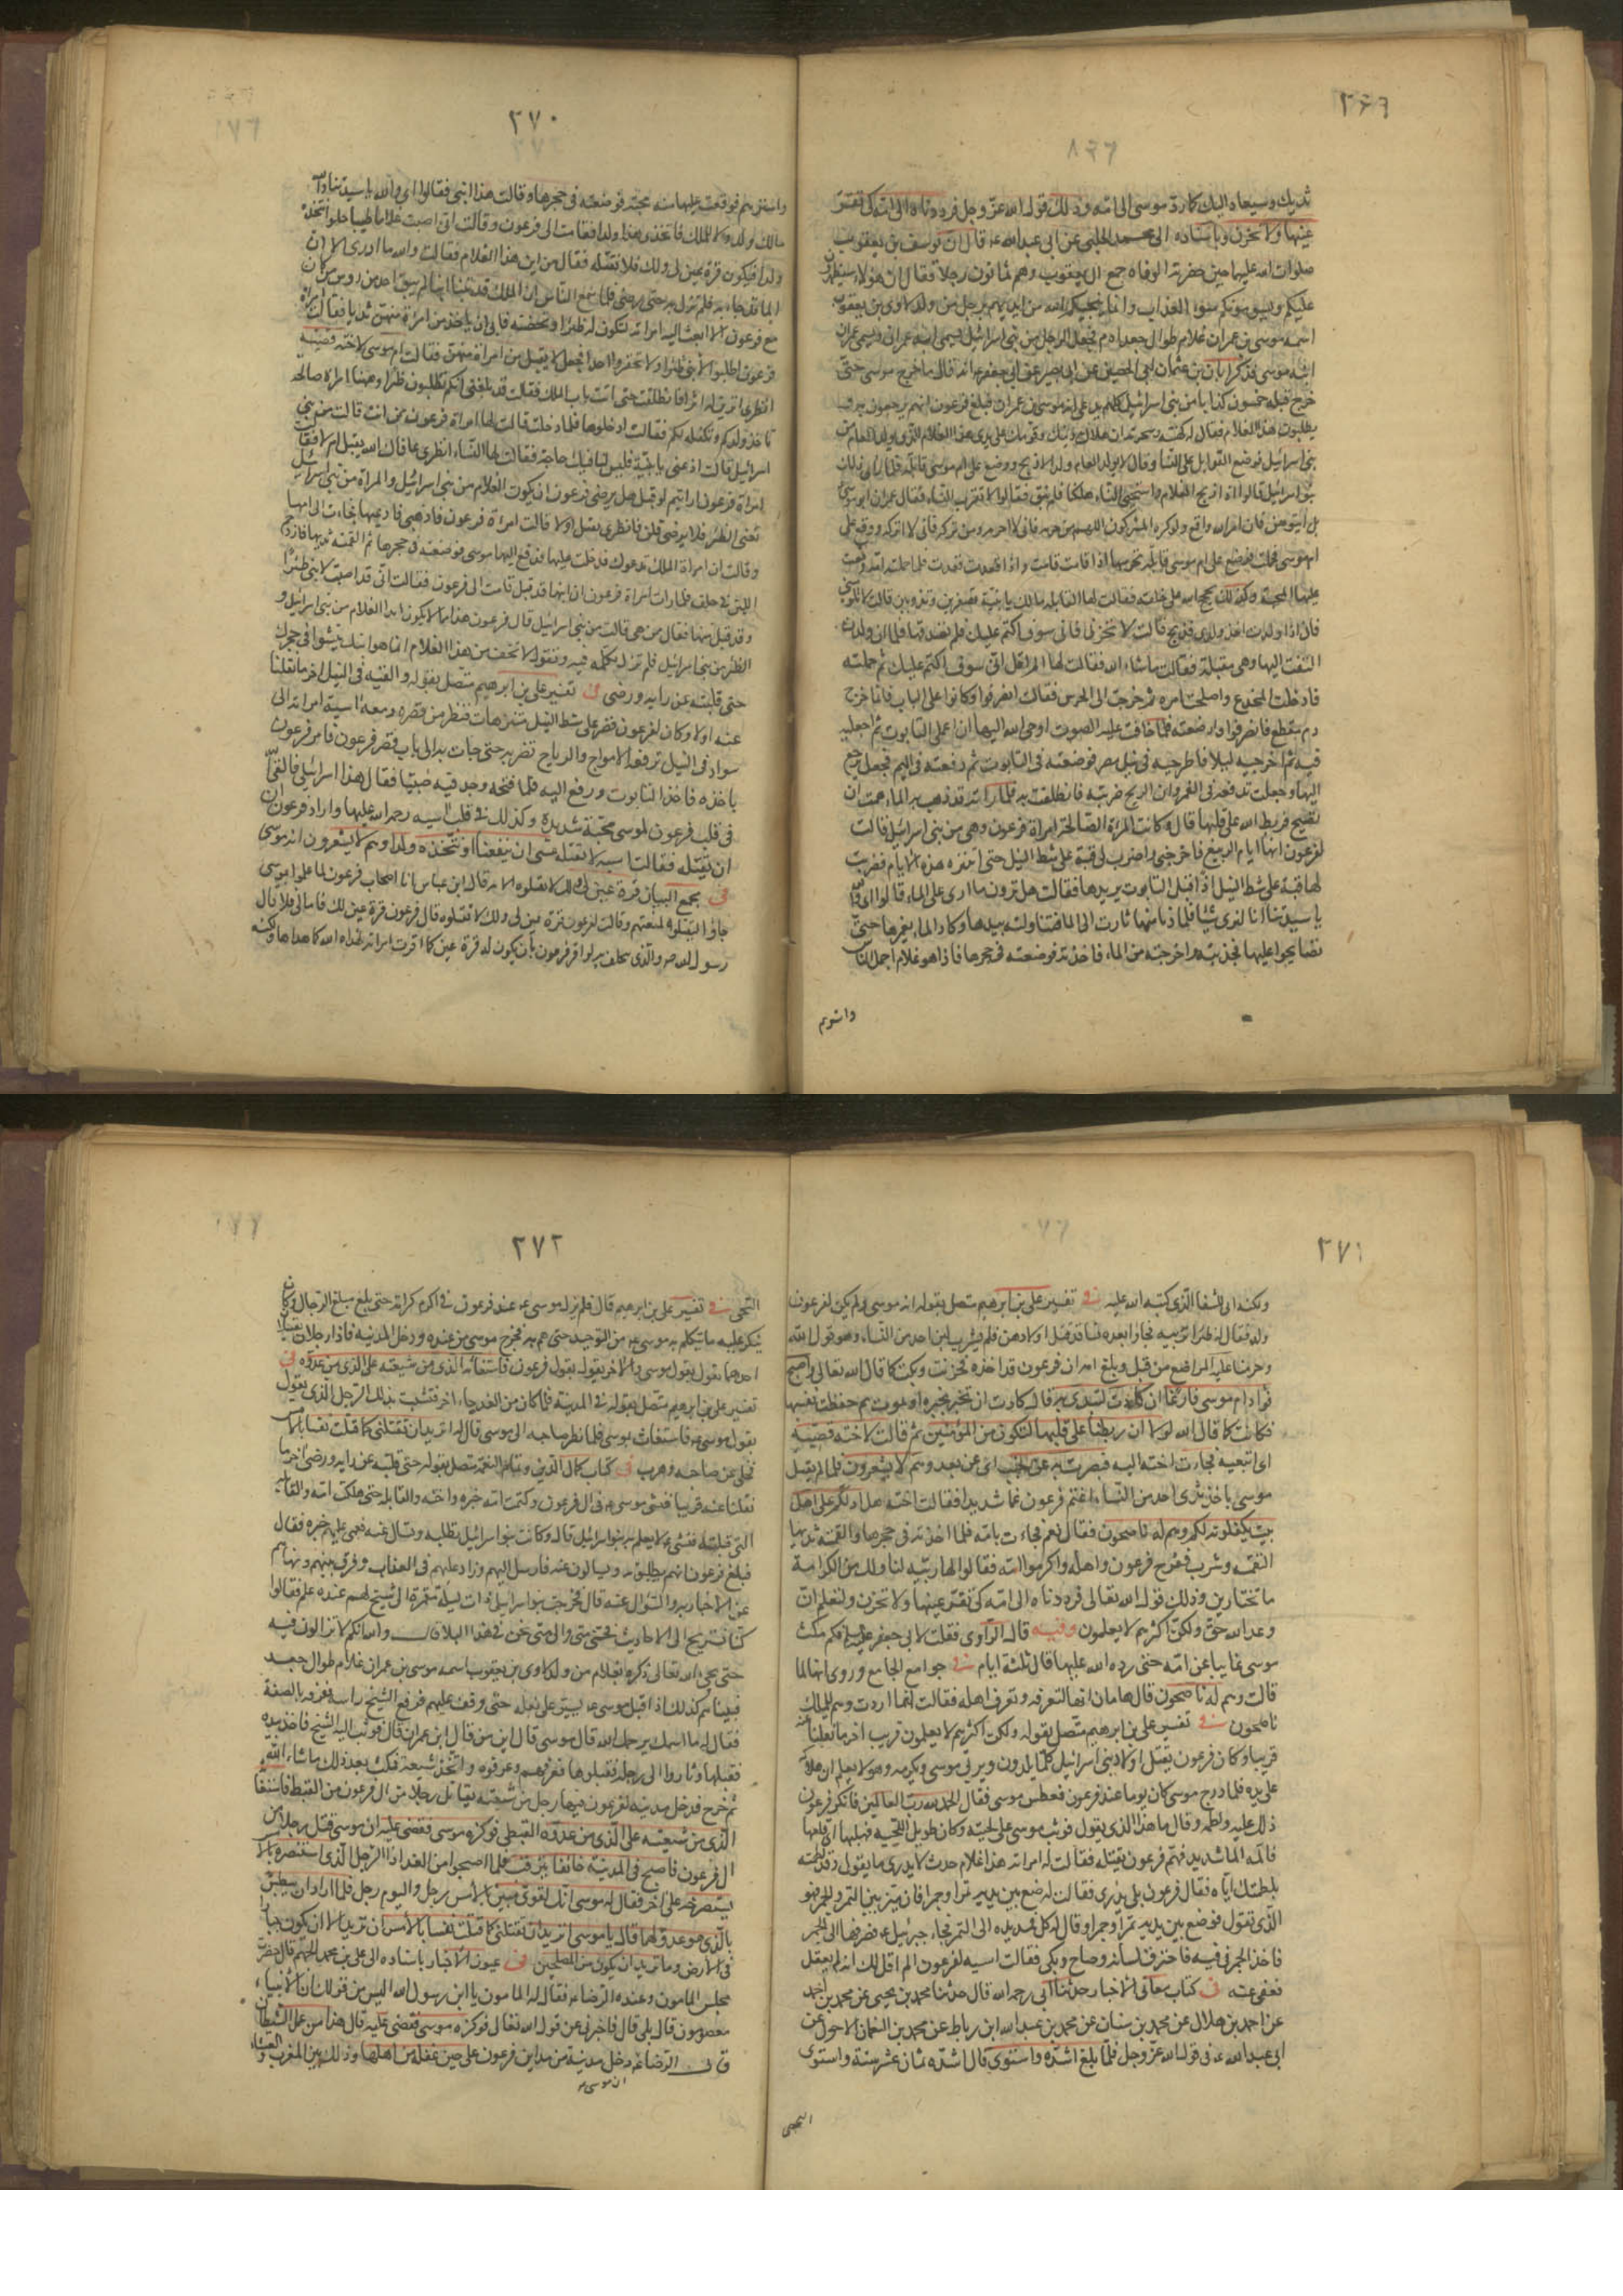 ٢٦٩
ثدييك وسيعاد اليك كما رد موسى الى امه وذلك قوله الله عز وجل فرددناه الى امه كى تقر
عينها ولا تحزن وباسناده الى محمد الحلبى عن ابى عبد الله ع قال ان يوسف بن يعقوب
صلوات الله عليهما حين حضرته الوفاة جمع ال يعقوب وهم ثمانون رجلا فقال ان هؤلاء سيظهرون
عليكم ويسومونكم سوء العذاب وانما ينجيكم الله من ايديهم برجل من ولد لاوى بن يعقوب
اسمه موسى بن عمران غلام طوال جعد ادم فجعل الرجل من بنى اسرائيل يسمى ابنه عمران ويسمى عمران
ابنه موسى فذكر ابان بن عثمان عن ابى الحصين عن ابى بصير عن ابى جعفر ع انه قال ما خرج موسى حتى
خرج قبله خمسون كذابا من بنى اسرائيل كلهم يدعى انه موسى بن عمران فبلغ فرعون انهم يرجعون به و
يطلبون هذا الغلام فقال له كهنته وسحرته ان هلاك دينك وقومك على يدى هذا الغلام الذى يولد العام من
بنى اسرائيل فوضع القوابل على النساء وقال لا يولد العام ولد الا ذبح ووضع على ام موسى قابلة فلما راى ذلك
بنو اسرائيل قالوا اذا ذبح الغلمان واستحيى النساء هلكنا فلم نبق فتعالوا لا نقرب النساء فقال عمران ابو موسى
بل ايتوهن فان امر الله واقع ولو كره المشركون اللهم من حرمه فانى لا احرمه ومن تركه فانى لا اتركه ووقع على
ام موسى فحملت فوضع على ام موسى قابلة تحرسها اذا قامت قامت واذا قعدت قعدت فلما حملته امه وقعت
عليها المحبة وكذلك حجج الله على خلقه فقالت لها القابلة مالك يا بنية تصفرين وتذوبين قالت لا تلومينى
فانى اذا ولدت اخذ ولدى فذبح قالت لا تحزنى فانى سوف اكتم عليك فلم تصدقها فلما ان ولدت
التفتت اليها وهى مقبلة فقالت ما شاء الله فقالت لها الم اقل انى سوف اكتم عليك ثم حملته
فادخلته المخدع واصلحت امره ثم خرجت الى الحرس فقالت انصرفوا وكانوا على الباب فانما خرج
دم منقطع فانصرفوا وارضعته فلما خافت عليه الصوت اوحى الله اليها ان اعملى التابوت ثم اجعليه
فيه ثم اخرجيه ليلا فاطرحيه فى نيل مصر فوضعته فى التابوت ثم دفعته فى اليم فجعل يرجع
اليها وجعلت تدفعه فى الغمر وان الريح ضربته فانطلقت به فلما راته قد ذهب به الماء همت ان
تصيح فربط الله على قلبها قال وكانت المراة الصالحة امراة فرعون وهى من بنى اسرائيل قالت
لفرعون انها ايام الربيع فاخرجنى واضرب لى قبة على شط النيل حتى اتنزه هذه الايام فضربت
لها قبة على شط النيل اذ اقبل التابوت يريدها فقالت هل ترون ما ارى على الماء قالوا اى والله
يا سيدتنا انا لنرى شيئا فلما دنا منها ثارت الى الماء فتناولته بيدها وكاد الماء يغمرها حتى
تصايحوا عليها فجذبته واخرجته من الماء فاخذته فوضعته فى حجرها فاذا هو غلام اجمل الناس
واسترهم
٢٧٠
واسترهم فوقعت عليها منه محبة فوضعته فى حجرها وقالت هذا ابنى فقالوا اى والله يا سيدتنا والله
مالك ولد ولا للملك فاتخذى هذا ولدا فقامت الى فرعون وقالت انى اصبت غلاما طيبا حلوا نتخذه
ولدا فيكون قرة عين لى ولك فلا تقتله فقال من اين هذا الغلام فقالت والله ما ادرى الا ان
الماء جاء به فلم تزل به حتى رضى فلما سمع الناس ان الملك قد تبنى ابنا لم يبق احد من روس من كان
مع فرعون الا بعث اليه امراته لتكون له ظئرا وتحضنه فابى ان ياخذ من امراة منهن ثديا فقالت امراة
فرعون اطلبوا لابنى ظئرا ولا تحقروا احدا فجعل لا يقبل من امراة منهن فقالت ام موسى لاخته قصيه
انظرى اترين له اثرا فانطلقت حتى اتت باب الملك فقالت قد بلغنى انكم تطلبون ظئرا وههنا امراة صالحة
تاخذ ولدكم وتكفله لكم فقالت ادخلوها فلما دخلت قالت لها امراة فرعون ممن انت قالت من بنى
اسرائيل قالت اذهبى يا بنية فليس لنا فيك حاجة فقالت لها النساء انظرى عافاك الله يقبل ام لا فقالت
امراة فرعون ارايتم لو قبل هل يرضى فرعون ان يكون الغلام من بنى اسرائيل والمراة من بنى اسرائيل
تعنى الظئر فلا يرضى قلن فانظرى يقبل او لا قالت امراة فرعون فاذهبى فادعيها فجاءت الى امها
وقالت ان امراة الملك تدعوك فدخلت عليها فدفع اليها موسى فوضعته فى حجرها ثم القمته ثديها فازدحم
اللبن فى حلقه فلما رات امراة فرعون ان ابنها قد قبل قامت الى فرعون فقالت انى قد اصبت لابنى ظئرا
وقد قبل منها فقال ممن هى قالت من بنى اسرائيل قال فرعون هذا مما لا يكون ابدا الغلام من بنى اسرائيل و
الظئر من بنى اسرائيل فلم تزل تكلمه فيه وتقول لا تخف من هذا الغلام انما هو ابنك ينشوا فى حجرك
حتى قلبته عن رايه ورضى فى تفسير على بن ابرهيم متصل بقوله والقيه فى النيل اخر ما نقلنا
عنه اولا وكان لفرعون قصر على شط النيل متنزهات فنظر من قصره ومعه اسية امراته الى
سواد فى النيل ترفعه الامواج والرياح تضربه حتى جاءت به الى باب قصر فرعون فامر فرعون
باخذه فاخذ التابوت ورفع اليه فلما فتحه وجد فيه صبيا فقال هذا اسرائيلى فالقى الله
فى قلب فرعون لموسى محبة شديدة وكذلك فى قلب اسيه رحمة الله عليها واراد فرعون ان
ان يقتله فقالت اسيه لا تقتله عسى ان ينفعنا او نتخذه ولدا وهم لا يشعرون انه موسى
فى مجمع البيان قرة عين لى ولك لا تقتلوه الاية قال ابن عباس ان اصحاب فرعون لما علموا بموسى
جاؤا ليقتلوه فمنعتهم وقالت لفرعون قرة عين لى ولك لا تقتلوه قال فرعون قرة عين لك فاما لى فلا قال
رسول الله ص والذى يحلف به لو اقر فرعون بان يكون له قرة عين كما اقرت امراته لهداه الله كما هداها ولكنه
٢٧١
ولكنه ابى للشقا الذى كتبه الله عليه فى تفسير على بن ابرهيم متصل بقوله انه موسى ولم يكن لفرعون
ولد فقال له ظئرا تربيه فجاؤا بعدة نساء قد قتل اولادهن فلم يشرب لبن احد من النساء وهو قول الله
وحرمنا عليه المراضع من قبل وبلغ امه ان فرعون قد اخذه فحزنت وبكت كما قال الله تعالى واصبح
فؤاد ام موسى فارغا ان كادت لتبدى به قال كادت ان تخبر بخبره او تموت ثم حفظت نفسها
فكانت كما قال الله لولا ان ربطنا على قلبها لتكون من المؤمنين ثم قالت لاخته قصيه
اى اتبعيه فجاءت اخته اليه فبصرت به عن جنب اى عن بعد وهم لا يشعرون فلما لم يقبل
موسى ياخذ ثدى احد من النساء اغتم فرعون غما شديدا فقالت اخته هل ادلكم على اهل
بيت يكفلونه لكم وهم له ناصحون فقال نعم فجاءت بامه فلما اخذته فى حجرها والقمته ثديها
التقمه وشرب ففرح فرعون واهله واكرموا امه فقالوا لها ربيه لنا ولك من الكرامة
ما تختارين وذلك قوله الله تعالى فرددناه الى امه كى تقر عينها ولا تحزن ولتعلم ان
وعد الله حق ولكن اكثرهم لا يعلمون وفيه قال الراوى فقلت لابى جعفر عليه السلام فكم مكث
موسى غايبا عن امه حتى رده الله عليها قال ثلثة ايام فى جوامع الجامع وروى انها لما
قالت وهم له ناصحون قال هامان انها لتعرفه وتعرف اهله فقالت انما اردت وهم للملك
ناصحون فى تفسير على بن ابرهيم متصل بقوله ولكن اكثرهم لا يعلمون قريب اخر ما نقلنا عنه
قريبا وكان فرعون يقتل اولاد بنى اسرائيل كلما يلدون ويربى موسى ويكرمه وهو لا يعلم ان هلاكه
على يده فلما درج موسى كان يوما عند فرعون فعطس موسى فقال الحمد لله رب العالمين فانكر فرعون
ذلك عليه ولطمه وقال ما هذا الذى تقول فوثب موسى على لحيته وكان طويل اللحيه فهلبها اى قلعها
فالمه الما شديدا فهم فرعون بقتله فقالت له امراته هذا غلام حدث لا يدرى ما يقول وقد لطمته
بلطمتك اياه فقال فرعون بلى يدرى فقالت له ضع بين يديه تمرا وجمرا فان ميز بين التمر والجمر فهو
الذى تقول فوضع بين يديه تمرا وجمرا وقال له كل فمد يده الى التمر فجاء جبرئيل ع فصرفها الى الجمر
فاخذ الجمر فى فيه فاحترق لسانه وصاح وبكى فقالت اسيه لفرعون الم اقل لك انه لم يعقل
فعفى عنه فى كتاب معانى الاخبار حدثنا ابى رحمه الله قال حدثنا محمد بن يحيى عن محمد بن احمد
عن احمد بن هلال عن محمد بن سنان عن محمد بن عبد الله ابن رباط عن محمد بن النعمان الاحول عن
ابى عبد الله ع فى قول الله عز وجل فلما بلغ اشده واستوى قال اشده ثمان عشر سنة واستوى
التحى
٢٧٢
التحى فى تفسير على بن ابرهيم قال فلم يزل موسى ع عند فرعون فى اكرم كرامة حتى بلغ مبلغ الرجال وكان
ينكر عليه ما يتكلم به موسى ع من التوحيد حتى هم به فخرج موسى من عنده ودخل المدينه فاذا رجلان يقتتلان
احدهما يقول بقول موسى والاخر يقول بقول فرعون فاستغاثه الذى من شيعته على الذى من عدوه فى
تفسير على بن ابرهيم متصل بقوله فى المدينة فلما كان من الغد جاء اخر فتشبث بذلك الرجل الذى يقول
بقول موسى ع فاستغاث بموسى فلما نظر صاحبه الى موسى قال له اتريد ان تقتلنى كما قتلت نفسا بالامس
فخلى عن صاحبه وهرب فى كتاب كمال الدين وتمام النعمة متصل بقوله حتى قلبته عن رايه ورضى اخر ما
نقلنا عنه قريبا فنشى موسى ع فى ال فرعون وكتمت امه خبره واخته والقابلة حتى هلكت امه والقابلة
التى قبلته فنشى ع لا يعلم به بنو اسرائيل قال وكانت بنو اسرائيل تطلبه وتسال عنه فعمى عليهم خبره فقال
فبلغ فرعون انهم يطلبونه ويسالون عنه فارسل اليهم وزاد عليهم فى العذاب وفرق بينهم ونهاهم
عن الاخبار به والسؤال عنه قال فخرجت بنو اسرائيل ذات ليلة مقمرة الى شيخ لهم عنده علم فقالوا
كنا نستريح الى الاحاديث فحتى متى والى متى نحن فى هذا البلاء قال والله انكم لا تزالون فيه
حتى يجىء الله تعالى ذكره بغلام من ولد لاوى بن يعقوب اسمه موسى بن عمران غلام طوال جعد
فبينا هم كذلك اذ اقبل موسى ع يسير على بغلة حتى وقف عليهم فرفع الشيخ راسه فعرفه بالصفة
فقال له ما اسمك يرحمك الله قال موسى قال ابن من قال ابن عمران قال فوثب اليه الشيخ فاخذ بيده
فقبلها وثاروا الى رجله فقبلوها فعرفهم وعرفوه واتخذ شيعة فمكث بعد ذلك ما شاء الله
ثم خرج فدخل مدينة لفرعون فيها رجل من شيعته يقاتل رجلا من ال فرعون من القبط فاستغاثه
الذى من شيعته على الذى من عدوه القبطى فوكزه موسى فقضى عليه ان موسى قتل رجلا من
ال فرعون فاصبح فى المدينة خائفا يترقب فلما اصبحوا من الغد اذا الرجل الذى استنصره بالامس
يستصرخه على اخر فقال له موسى انك لغوى مبين بالامس رجل واليوم رجل فلما اراد ان يبطش
بالذى هو عدو لهما قال يا موسى اتريد ان تقتلنى كما قتلت نفسا بالامس ان تريد الا ان تكون جبارا
فى الارض وما تريد ان يكون من المصلحين فى عيون الاخبار باسناده الى على بن محمد الجهم قال حضرت
مجلس المامون وعنده الرضا ع فقال له المامون يا ابن رسول الله اليس من قولك ان الانبياء
معصومون قال بلى قال فاخبرنى عن قول الله تعالى فوكزه موسى فقضى عليه قال هذا من عمل الشيطان
قال الرضا ع دخل مدينة من مداين فرعون على حين غفلة من اهلها وذلك بين المغرب والعشاء
ان موسى ع